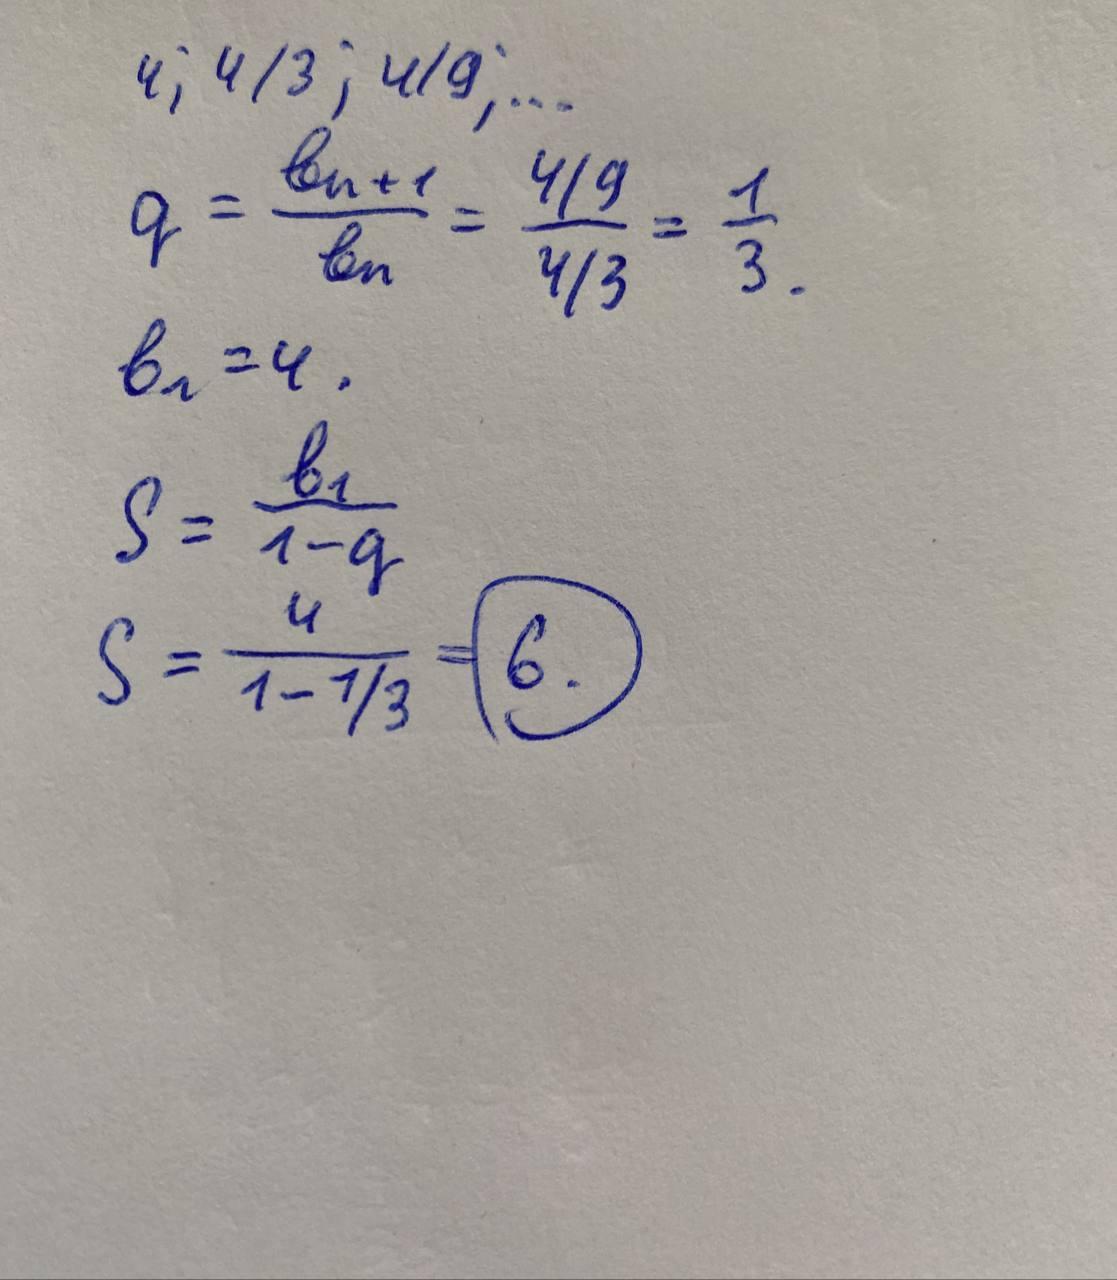 4; 4/3; 4/9;...
q = bn+1/bn = 4/9 / 4/3 = 1/3.
b1 = 4.
S = b1/1-q
S = 4/1-1/3 = 6.